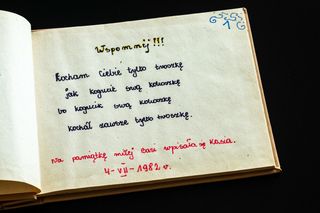 1
Wspomnij!!!
Kocham Ciebie tylko troszkę
jak kogucik swą kokoszkę
bo kogucik swą kokoszkę
kochał zawsze tylko troszkę.
Na pamiątkę miłej Casi wpisała się Kasia.
4-VII-1982 r.